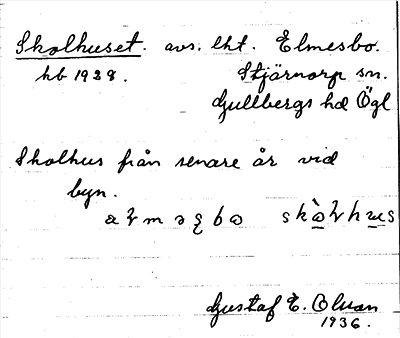 Skolhuset. avs. lht. Elmesbo.
hb 1928. Stjärnorp sn.
Gullbergs hd Ögl
Skolhus från senare år vid
byn.
Gustaf E. Olson
1936.